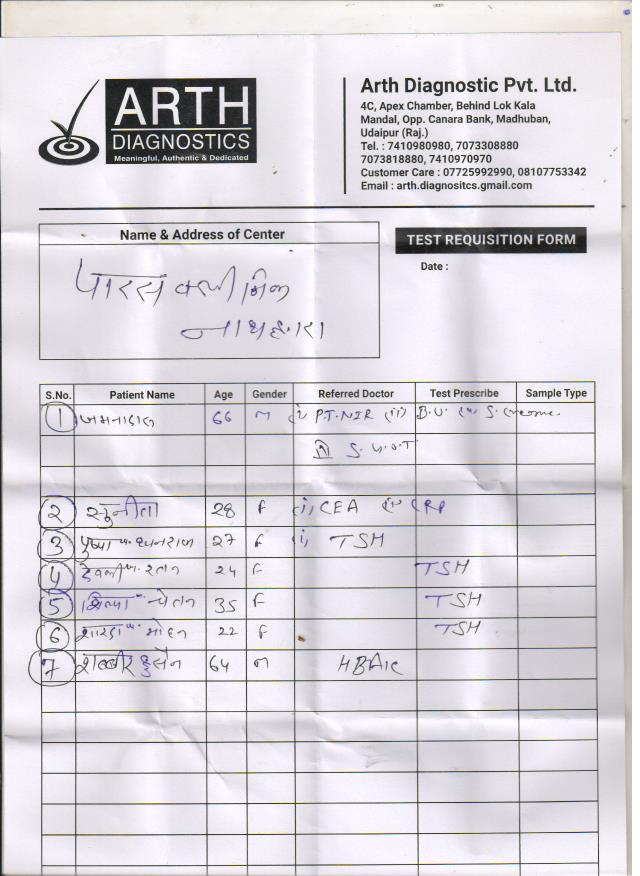 ARTH
DIAGNOSTICS
Meaningful, Authentic & Dedicated
Arth Diagnostic Pvt. Ltd.
4C, Apex Chamber, Behind Lok Kala
Mandal, Opp. Canara Bank, Madhuban,
Udaipur (Raj.)
Tel. : 7410980980, 7073308880
7073818880, 7410970970
Customer Care : 07725992990, 08107753342
Email : arth.diagnositcs.gmail.com
Name & Address of Center
TEST REQUISITION FORM
Date :
पारस क्लीनिक
नाथद्वारा
S.No. Patient Name Age Gender Referred Doctor Test Prescribe Sample Type
1 जमनालाल 66 M (i) PT.NIR (ii) B.U.
S.G.O.T
2 सुनीता 28 F (i) CEA (ii) CRP
3 पुष्पा 27 F (i) TSH
4 रतन 24 F TSH
5 शिल्पा चेतन 35 F TSH
6 शारदा मोहन 22 F TSH
7 शब्बीर हुसैन 64 M HBA1C